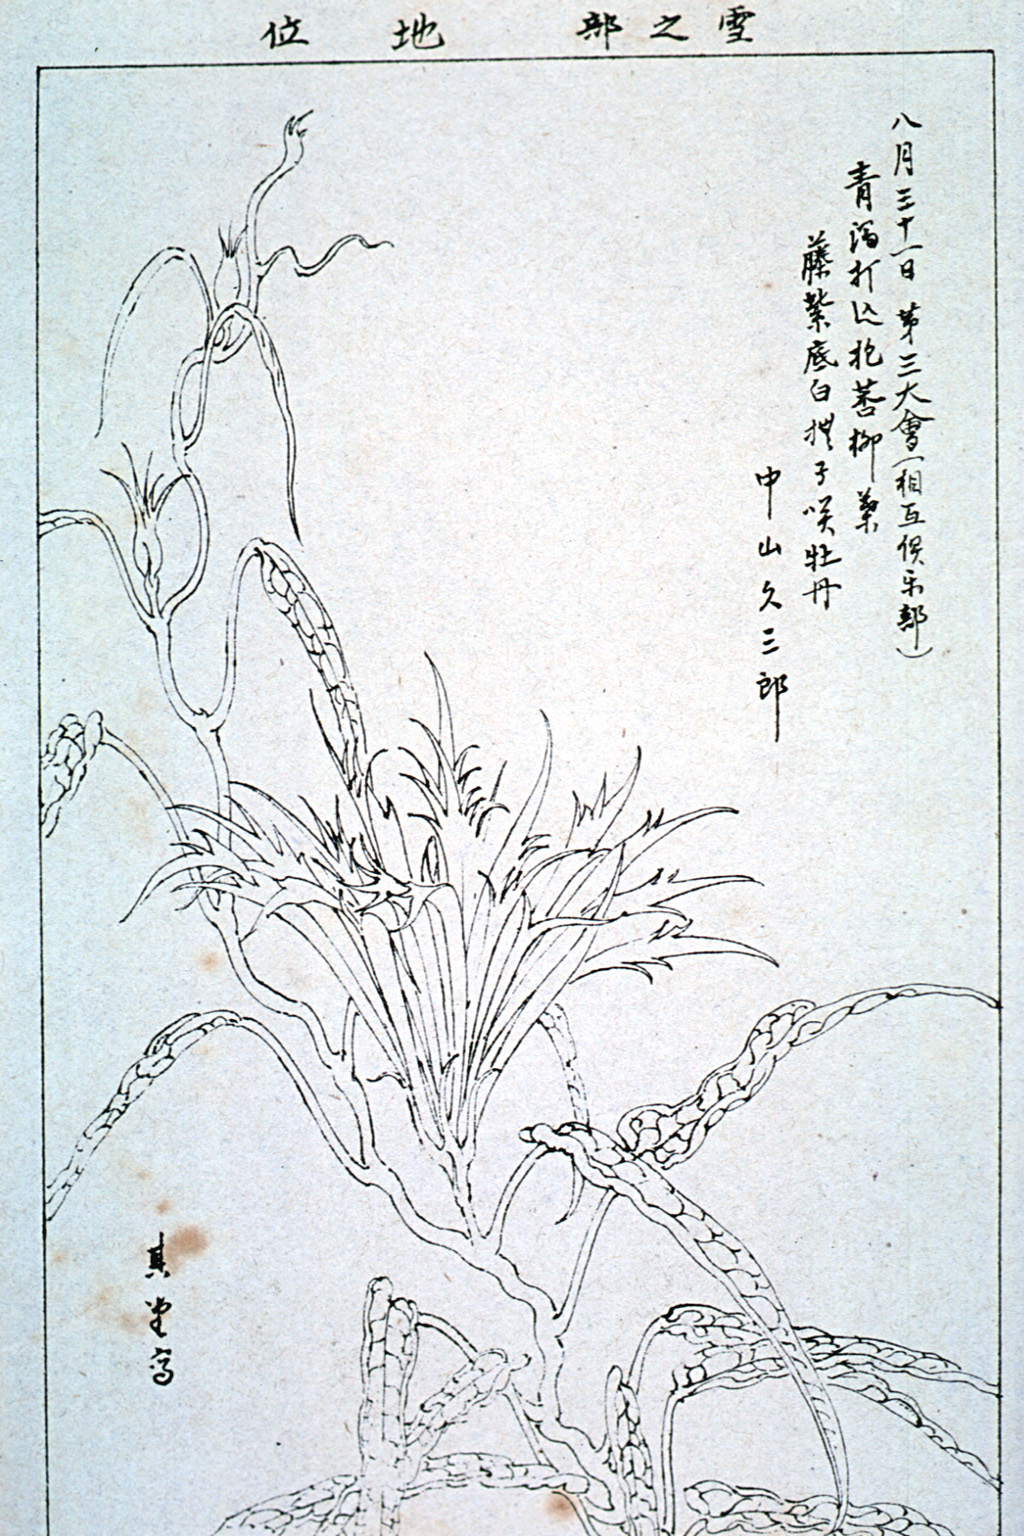 雪之部　地位
八月三十一日　第三大會（相互倶楽部）
青澑打込抱蓉柳葉
藤紫底白撫子咲牡丹
中山久三郎
其堂写